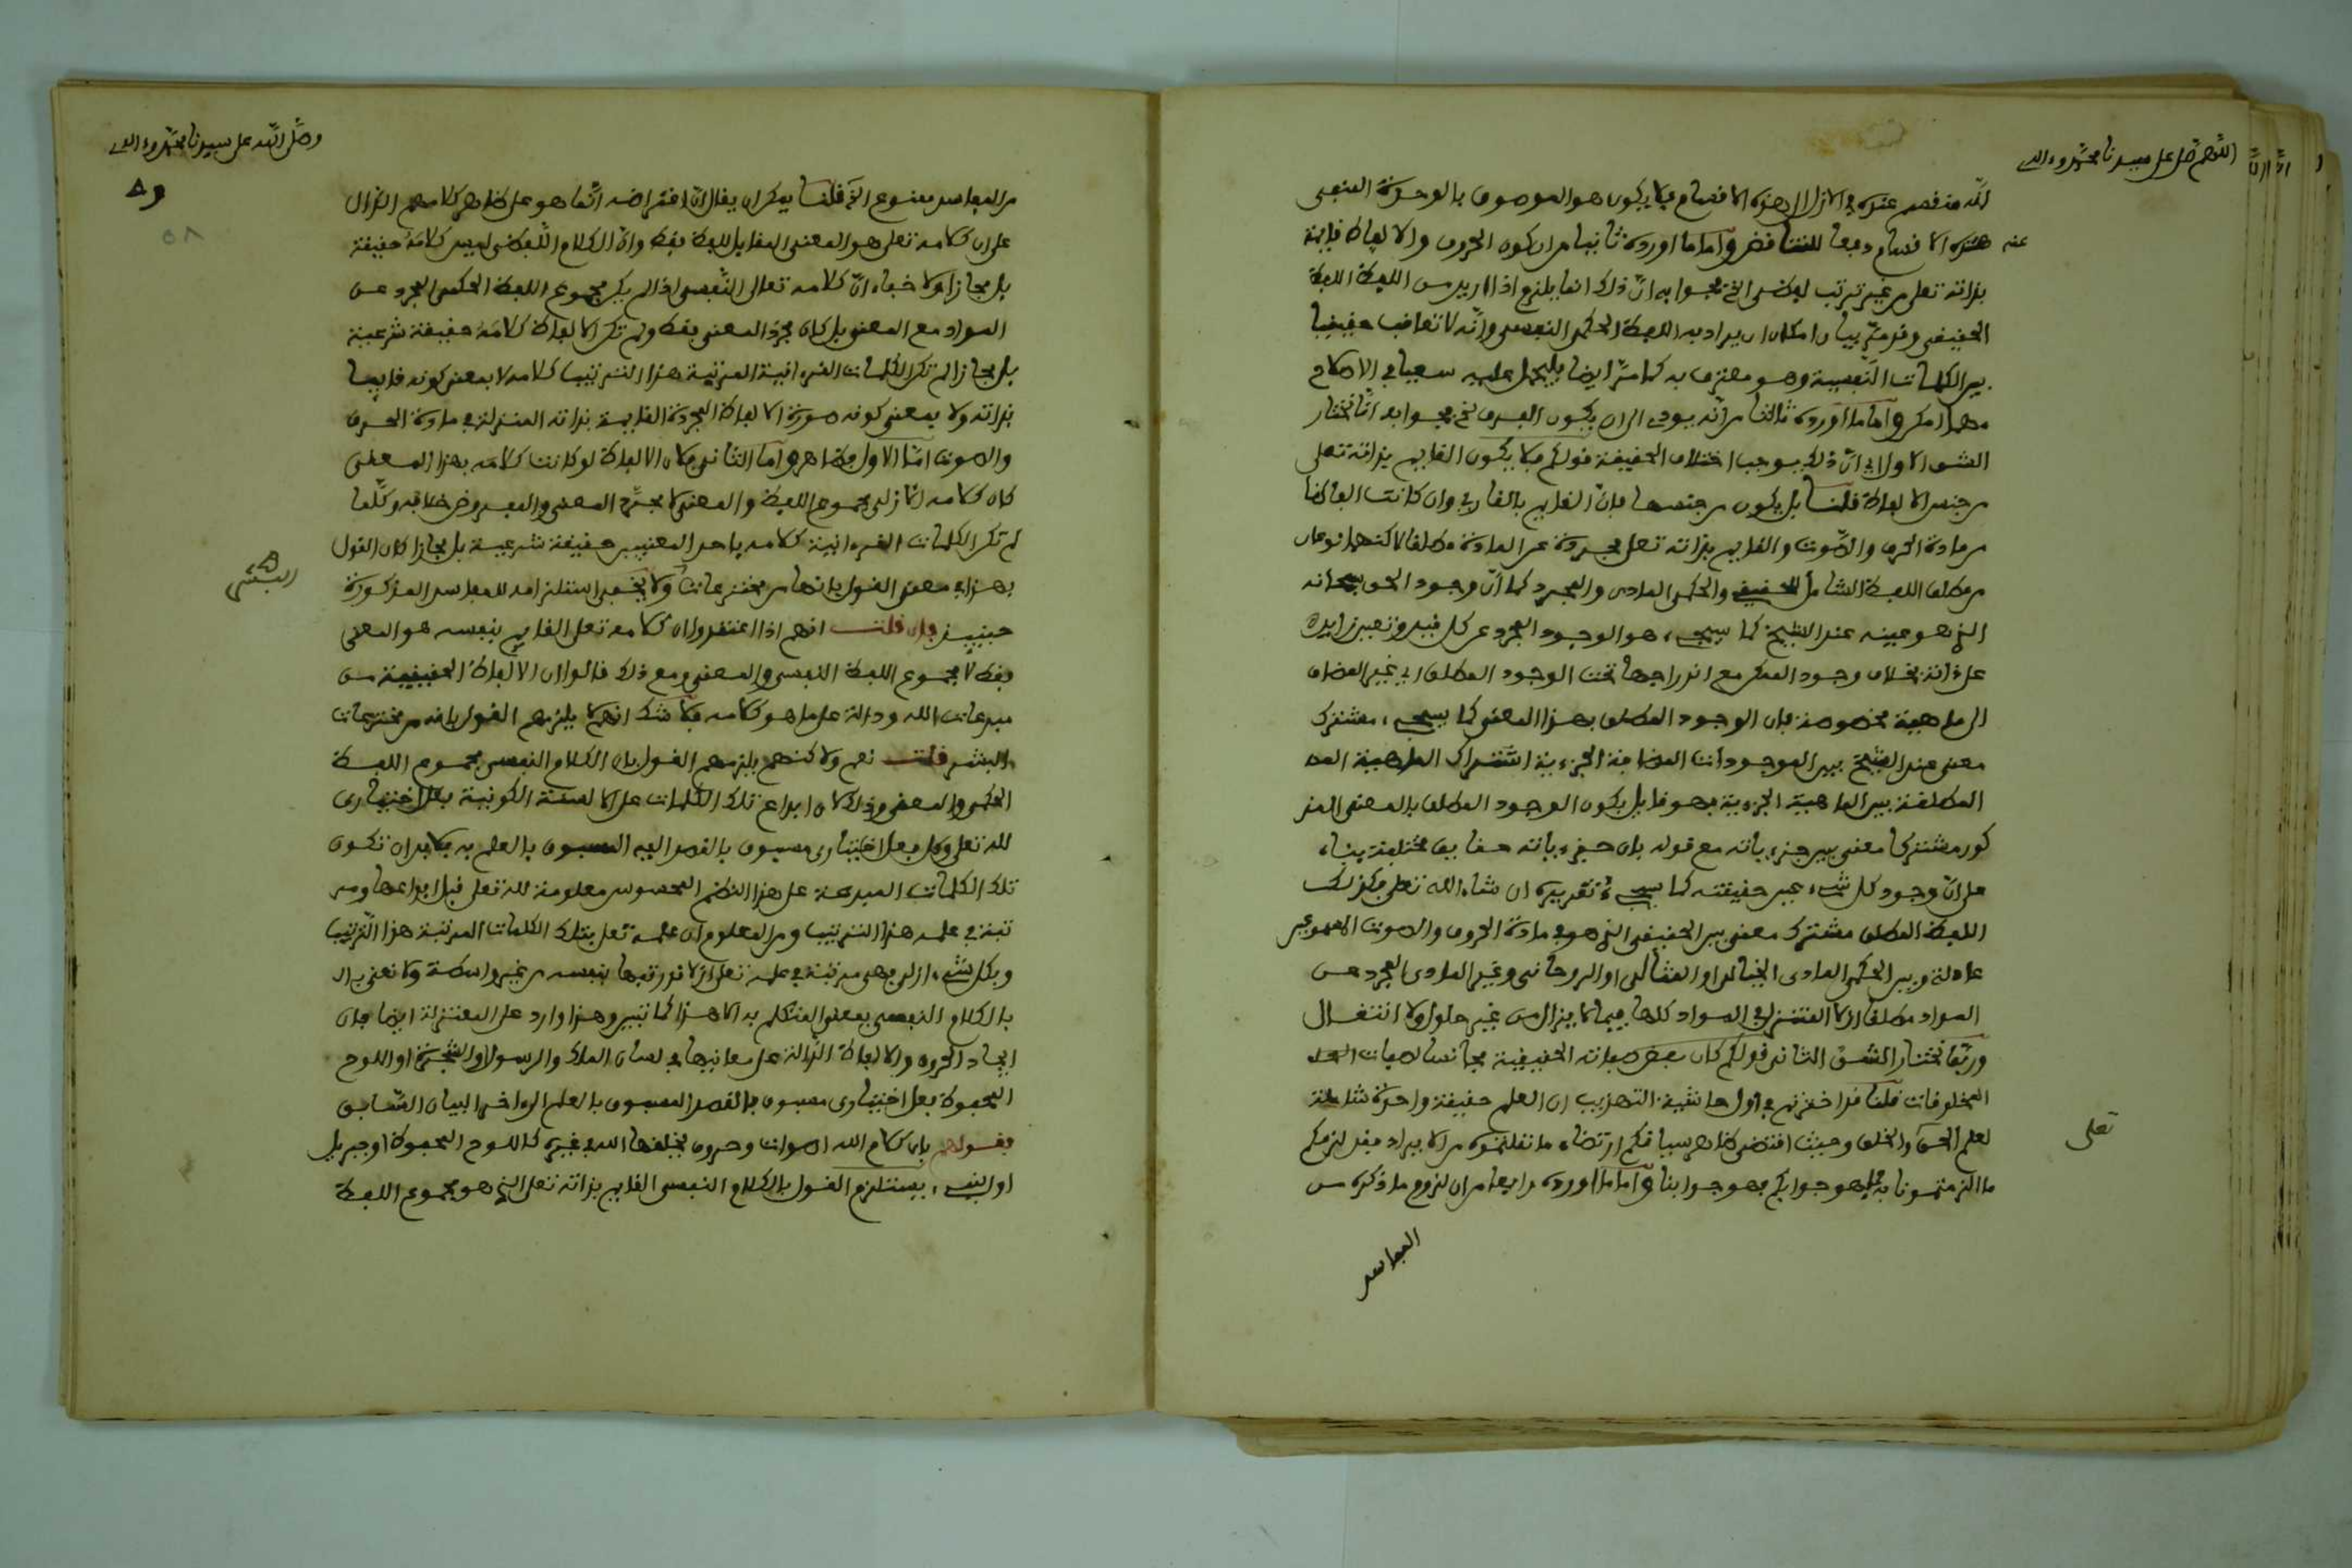 اللهم صل على سيدنا محمد وءاله
لانه منقسم عنده في الازل الى هذه الاقسام فلا يكون هو الموصوف بالوحدة المنفى
عنه هذه الاقسام دفعا للتناقض واما ما اورده ثانيا من ان كون الحروف والالفاظ قايمة
بذاته تعلى من غير ترتب يفضى الخ فجوابه ان ذلك انما يلزم اذا اريد من اللفظ اللفظ
الحقيقى وقد مر بيان امكان ان يراد به اللفظ الحكمى النفسى وانه لا تعاقب حقيقيا
بين الكلمات النفسية وهو معترف به كما مر ايضا فليحمل عليه سعيا في الاصلاح
مهما امكن واما ما اورده ثالثا من انه يودى الى ان يكون الفرق الخ فجوابه انا نختار
الشق الاول اي ان ذلك يوجب اختلاف الحقيقة قولكم فلا يكون القايم بذاته تعلى
من جنس الالفاظ قلنا بل يكون من جنسها فان القايم بالقاري وان كانت الفاظا
من مادة الحرف والصوت والقايم بذاته تعلى مجردة عن المادة مطلقا لاكنهما نوعان
من مطلق اللفظ الشامل للحقيقي والحكمى المادى والمجرد كما ان وجود الحق سبحانه
الذي هو عينه عند الشيخ كما سيجىء هو الوجود المجرد عن كل قيد وتعين زايد
على ذاته بخلاف وجود الممكن مع اندراجها تحت الوجود المطلق اي غير المضاف
الى ماهية مخصوصة فان الوجود المطلق بهذا المعنى كما سيجىء مشترك
معنى عند الشيخ بين الموجودات المضافة الجزءية اشتراك الماهية
المطلقة بين الماهية الجزءية فهو قايل بكون الوجود المطلق بالمعنى المذ
كور مشتركا معنى بين جزءياته مع قوله بان جزءياته حقايق مختلفة بناء
على ان وجود كل شىء عين حقيقته كما سيجىء تقريره ان شاء الله تعلى فكذلك
اللفظ المطلق مشترك معنى بين الحقيقى الذي هو في مادة الحروف والاصوات
عادلة وبين الحكمى المادى الخيالى او المثالى او الروحانى وغير المادى المجرد عن
المواد مطلقا ازلا المتنزل في المواد كلها فيما لا يزال من غير حلول ولا انتقال
وربما نختار الشق الثانى قولكم كان بعض صفاته الحقيقية مجانسا لصفات
المخلوقات قلنا قد اخترتم في اول حاشية التهذيب ان العلم حقيقة واحدة شاملة
لعلم الحق والخلق وحيث اقتضى ظاهر سياقكم ارتضاء ما نقلتموه من الايراد فقد لزمكم
تعلى
ما الزمتمونا به فما هو جوابكم فهو جوابنا واما ما اورده رابعا من ان لزوم ما ذكره من
المفاسد
وصلى الله على سيدنا محمد وءاله
٥٨
من المفاسد ممنوع الخ قلنا يمكن ان يقال ان اعتراضه انما هو على ظاهر كلامهم الدال
على ان كلامه تعلى هو المعنى المقابل للفظ فقط وان الكلام اللفظى ليس كلامه حقيقة
بل مجازا ولا خفاء ان كلامه تعالى النفسى اذا لم يكن مجموع اللفظ الحكمى المجرد عن
المواد مع المعنى بل كان مجرد المعنى فقط ولم تكن الالفاظ كلامه حقيقة شرعية
بل مجازا لم تكن الكلمات القرءانية المرتبة هذا الترتيب كلامه لا بمعنى كونه قايما
بذاته ولا بمعنى كونه صورة الالفاظ المجردة القايمة بذاته المتنزلة في مادة الحرف
والصوت اما الاول فظاهر واما الثانى فلان الالفاظ لو كانت كلامه بهذا المعنى
كان كلامه الازلى مجموع اللفظ والمعنى لا مجرد المعنى والمفروض خلافه وكلما
لم تكن الكلمات القرءانية كلامه باحد المعنيين حقيقة شرعية بل مجازا كان القول
بهذا في معنى القول بانها من مخترعات ولا يخفى استلزامه للمفاسد المذكورة
البشر
حينيذ فان قلت انهم اذا اعتقدوا ان كلامه تعلى القايم بنفسه هو المعنى
فقط لا مجموع اللفظ النفسى والمعنى ومع ذلك قالوا ان الالفاظ الحقيقية من
مبدعات الله ودالة على ما هو كلامه فلا شك انهم لا يلزمهم القول بانه من مخترعات
البشر قلت نعم ولاكنهم يلزمهم القول بان الكلام النفسى مجموع اللفظ
الحكمى والمعنى وذلك لان ابداع تلك الكلمات على الالسنة الكونية فعل اختيارى
لله تعلى وكل فعل اختيارى مسبوق بالقصد اليه المسبوق بالعلم به فلا بد ان تكون
تلك الكلمات المبدعة على هذا النظم المخصوص معلومة لله تعلى قبل ابداعها ومر
تبة في علمه هذا الترتيب ومن المعلوم ان علمه تعلى بتلك الكلمات المرتبة هذا الترتيب
وبكل شىء ازلى فهى مرتبة في علمه تعلى ازلا قد رتبها بنفسه من غير واسطة ولا نعنى
بالكلام النفسى بمعنى المتكلم به الا هذا كما تبين وهذا وارد على المعتزلة ايضا فان
ايجاد الحروف والالفاظ الدالة على معانيها في لسان الملك والرسول او الشجرة او اللوح
المحفوظ فعل اختيارى مسبوق بالقصد المسبوق بالعلم الى ءاخر البيان السابق
فقولهم بان كلام الله اصوات وحروف يخلقها الله في غيره كاللوح المحفوظ او جبريل
او النبىء يستلزم القول بالكلام النفسى القايم بذاته تعلى الذي هو مجموع اللفظ